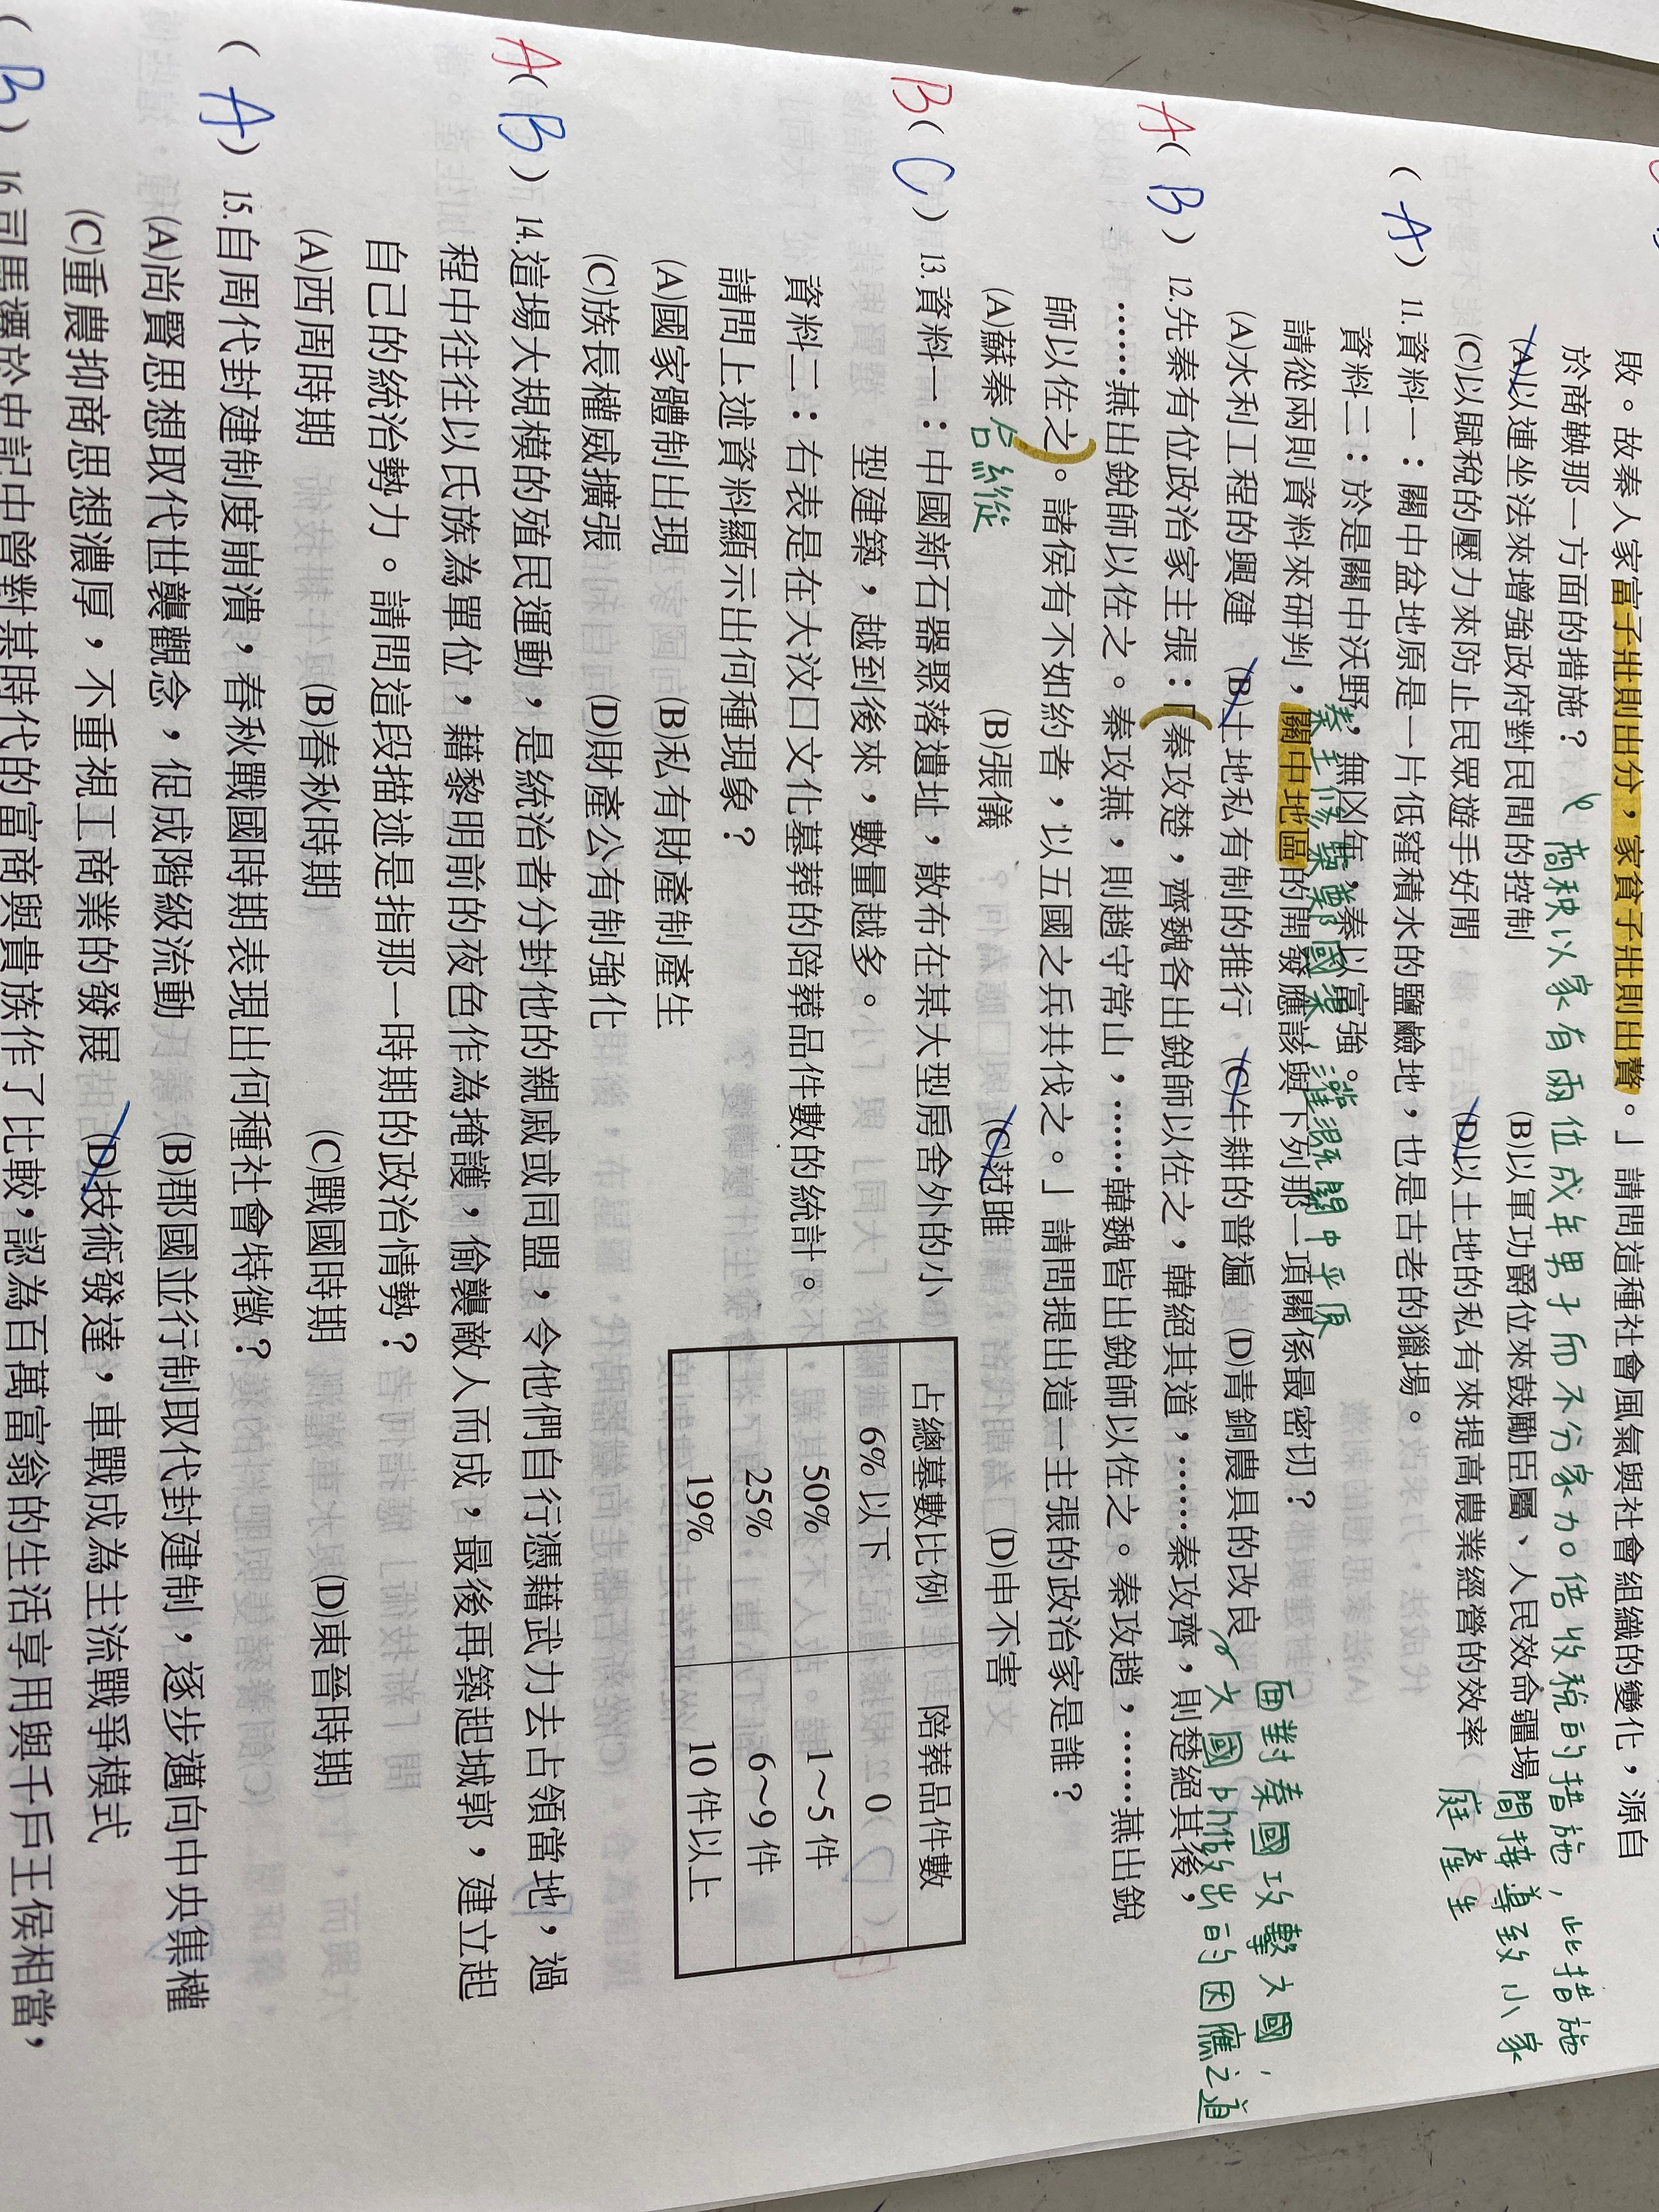 敗。故秦人家富子壯則出分，家貧子壯則出贅。」請問這種社會風氣與社會組織的變化，源自
於商鞅那一方面的措施？
商秧以家有兩位成年男子而不分家力。倍收稅的措施，此措施
(A)以連坐法來增強政府對民間的控制 (B)以軍功爵位來鼓勵臣屬、人民效命疆場
間接導致小家
(C)以賦稅的壓力來防止民眾遊手好閒 (D)以土地的私有來提高農業經營的效率
庭產生
(A) 11.資料一：關中盆地原是一片低窪積水的鹽鹼地，也是古老的獵場。
資料二：於是關中沃野，無凶年，秦以富強。
秦王修築鄭國渠，灌溉關中平原
請從兩則資料來研判，關中地區的開發應該與下列那一項關係最密切？
(A)水利工程的興建 (B)土地私有制的推行 (C)牛耕的普遍 (D)青銅農具的改良
面對秦國攻擊六國，
六國所做出的因應之道
A(B) 12.先秦有位政治家主張：「秦攻楚，齊魏各出銳師以佐之，韓絕其道，……秦攻齊，則楚絕其後，
……燕出銳師以佐之。秦攻燕，則趙守常山，……韓魏皆出銳師以佐之。秦攻趙，……燕出銳
師以佐之。諸侯有不如約者，以五國之兵共伐之。」請問提出這一主張的政治家是誰？
(A)蘇秦 合縱 (B)張儀 (C)范雎 (D)申不害
B(C) 13.資料一：中國新石器聚落遺址，散布在某大型房舍外的小
型建築，越到後來，數量越多。
資料二：右表是在大汶口文化墓葬的陪葬品件數的統計。
請問上述資料顯示出何種現象？
(A)國家體制出現 (B)私有財產制產生
(C)族長權威擴張 (D)財產公有制強化
占總墓數比例 陪葬品件數
6%以下 0
50% 1～5件
25% 6～9件
19% 10件以上
A(B) 14.這場大規模的殖民運動，是統治者分封他的親戚或同盟，令他們自行憑藉武力去占領當地，過
程中往往以氏族為單位，藉黎明前的夜色作為掩護，偷襲敵人而成，最後再築起城郭，建立起
自己的統治勢力。請問這段描述是指那一時期的政治情勢？
(A)西周時期 (B)春秋時期 (C)戰國時期 (D)東晉時期
(A) 15.自周代封建制度崩潰，春秋戰國時期表現出何種社會特徵？
(A)尚賢思想取代世襲觀念，促成階級流動 (B)郡國並行制取代封建制，逐步邁向中央集權
(C)重農抑商思想濃厚，不重視工商業的發展 (D)技術發達，車戰成為主流戰爭模式
(B) 16.司馬遷於史記中曾對某時代的富商與貴族作了比較，認為百萬富翁的生活享用與千戶王侯相當，